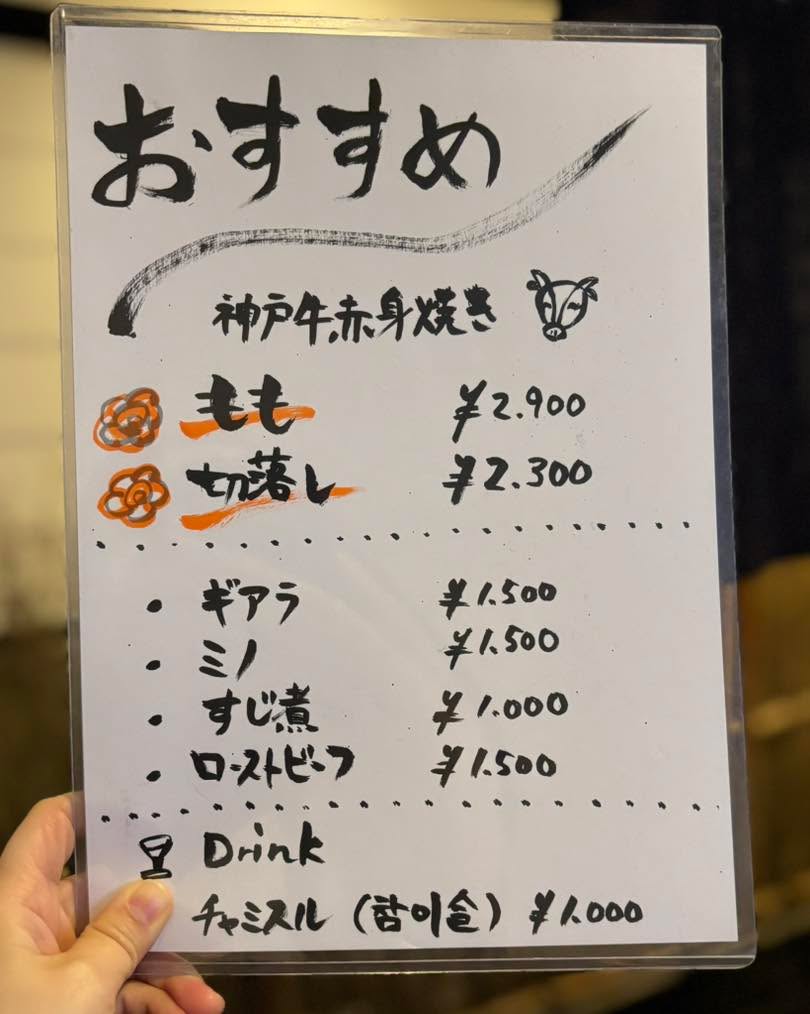 おすすめ
神戸牛赤身焼き
もも ¥2.900
切落し ¥2.300
・ギアラ ¥1.500
・ミノ ¥1.500
・すじ煮 ¥1.000
・ローストビーフ ¥1.500
Drink
チャミスル (참이슬) ¥1.000